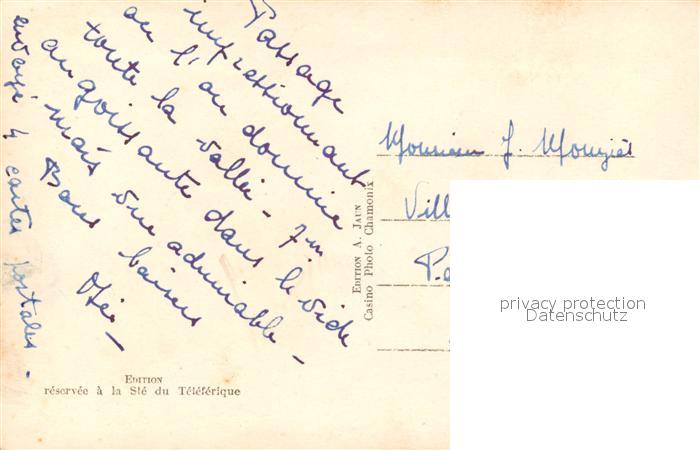 Passage
impressionnant
ou l'on domine
toute la vallée - 7 m
angoissante dans le vide
mais vue admirable -
Bons baisers
envoyé 4 cartes postales -
Monsieur J.
Vill
EDITION A. JAUN
Casino Photo Chamonix
EDITION
réservée à la Sté du Téléférique
privacy protection
Datenschutz